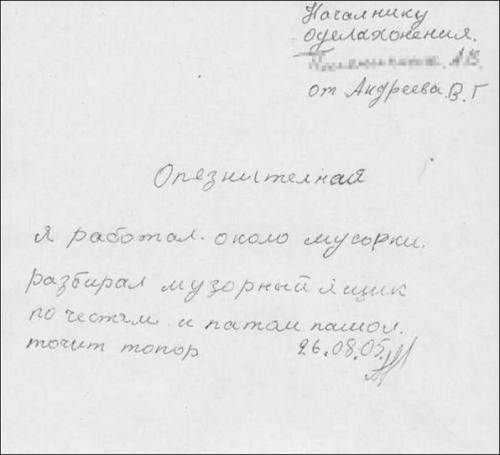 Началнику
оделахонения.
А.В.
от Андреева.В.Г
Опезнителная
я работал. около мусорки.
разбирал музорный ящик
по честям и патом пашол.
точит топор 26.08.05.